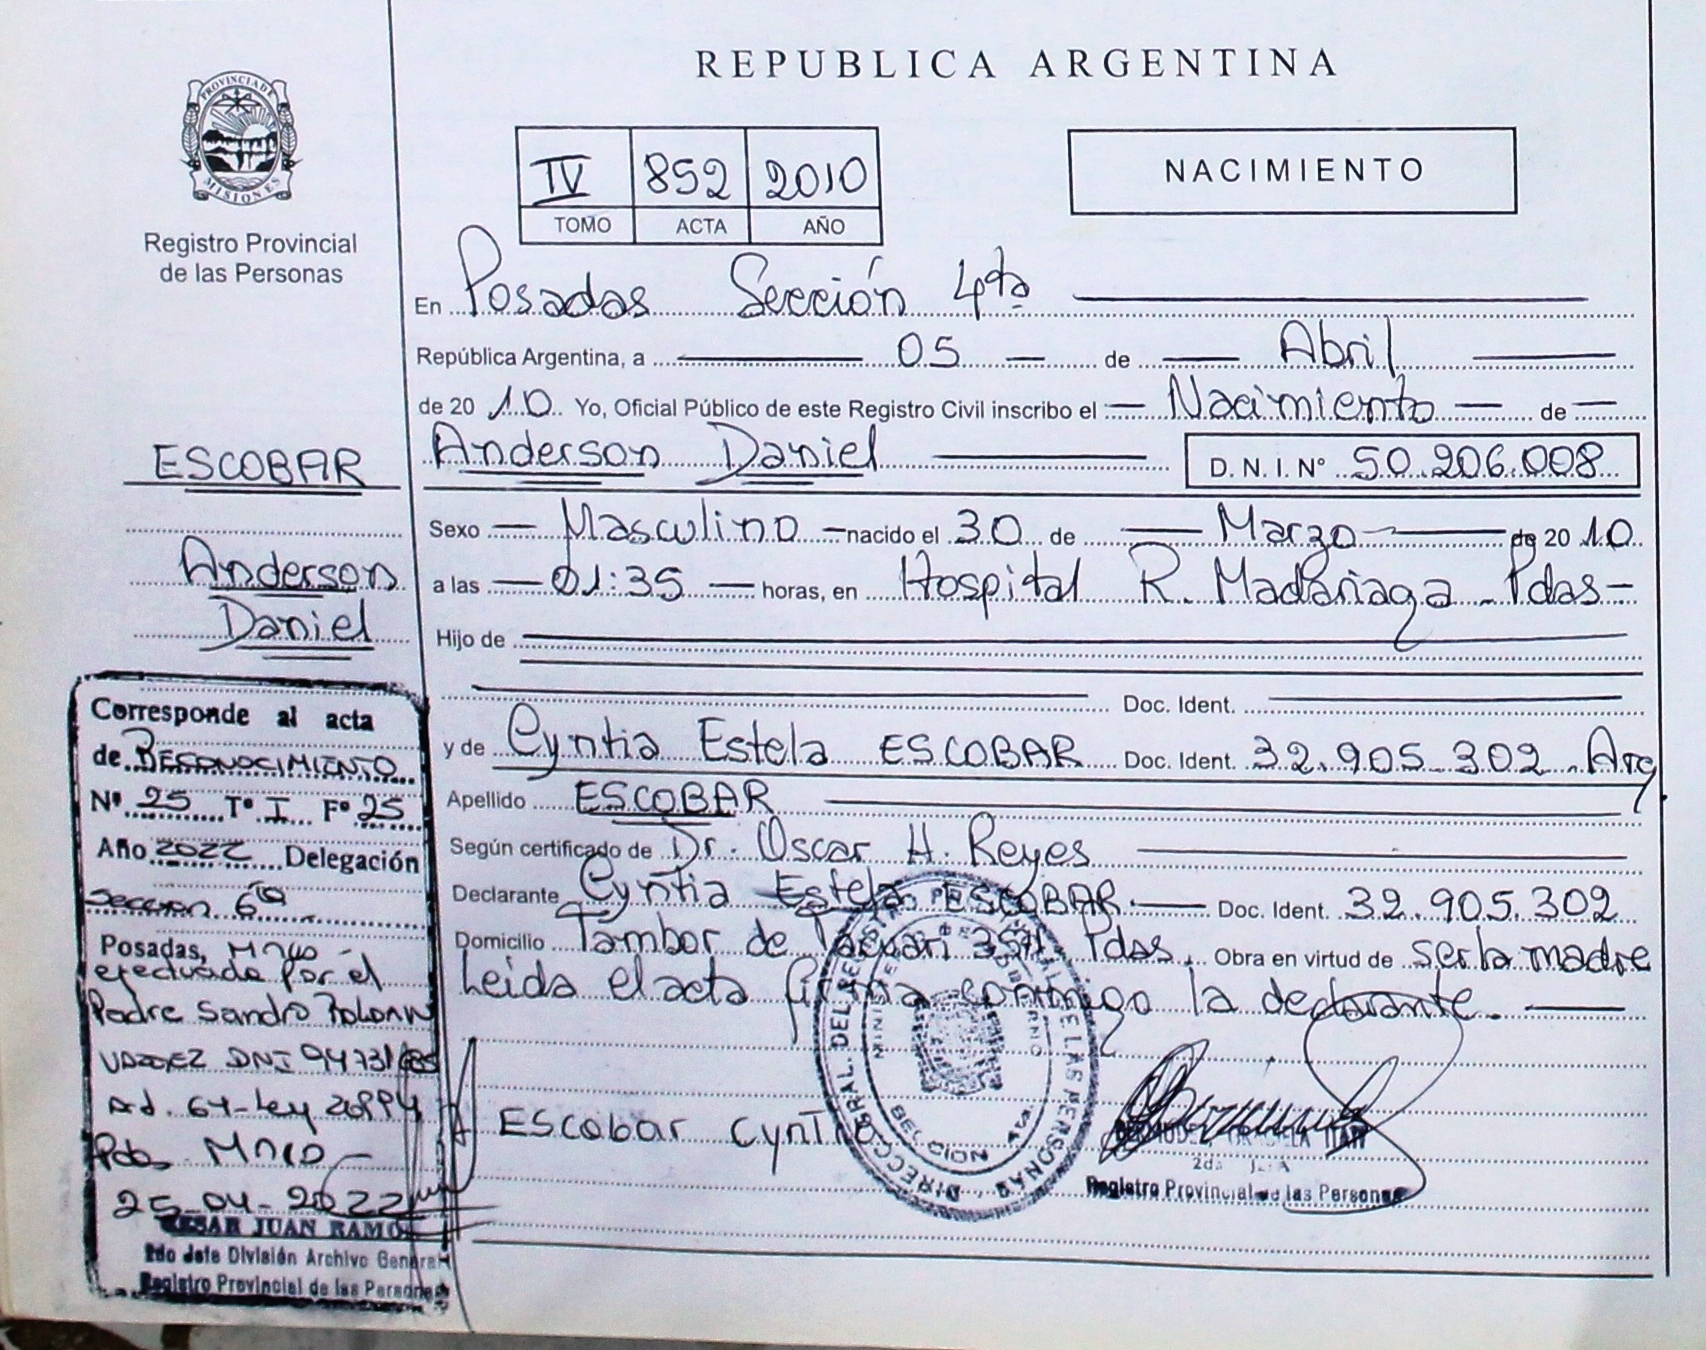 REPUBLICA ARGENTINA
PROVINCIA DE MISIONES
Registro Provincial
de las Personas
IV 852 2010
TOMO ACTA AÑO
NACIMIENTO
En Posadas Sección 4ta
República Argentina, a 05 de Abril
de 2010 Yo, Oficial Público de este Registro Civil inscribo el Nacimiento de
Anderson Daniel D.N.I. Nº 50.206.008
Sexo Masculino nacido el 30 de Marzo de 2010
a las 01:35 horas, en Hospital R. Madariaga - Pdas -
Hijo de
Doc. Ident.
y de Cyntia Estela ESCOBAR Doc. Ident. 32.905.302 Arg
Apellido ESCOBAR
Según certificado de Dr. Oscar H. Reyes
Declarante Cyntia Estela ESCOBAR Doc. Ident. 32.905.302
Domicilio Tambor de Tacuari Pdas. Obra en virtud de ser la madre
Leida el acta firma conmigo la declarante.
Escobar Cyntia
2da
Registro Provincial de las Personas
ESCOBAR
Anderson
Daniel
Corresponde al acta
de RECONOCIMIENTO
Nº 25 Tº I Fº 25
Año 2022 Delegación
Sección 6ta
Posadas, Mnes -
efectuada por el
Padre Sandro
DNI
Ley
Pdas Mnes -
25-04-2022
CESAR JUAN RAMO
2do Jefe División Archivo General
Registro Provincial de las Personas